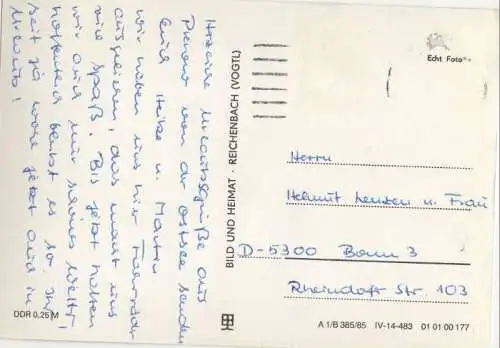 Herzliche Urlaubsgrüße aus
Prerow von der Ostsee senden
Euch Heike u. Martin
wir haben uns hier Fahrräder
ausgeliehen, das macht uns
viel Spaß. Bis jetzt hatten
wir auch nur schönes Wetter
hoffentlich bleibt es so. Ihr
seit ja wohl jetzt auch in
Urlaub!
DDR 0,25 M
BILD UND HEIMAT · REICHENBACH (VOGTL)
Echt Foto
Herrn
Helmut u. Frau
D-5300 Bonn 3
Rheindorf Str. 103
A 1/B 385/85 IV-14-483 01 01 00 177